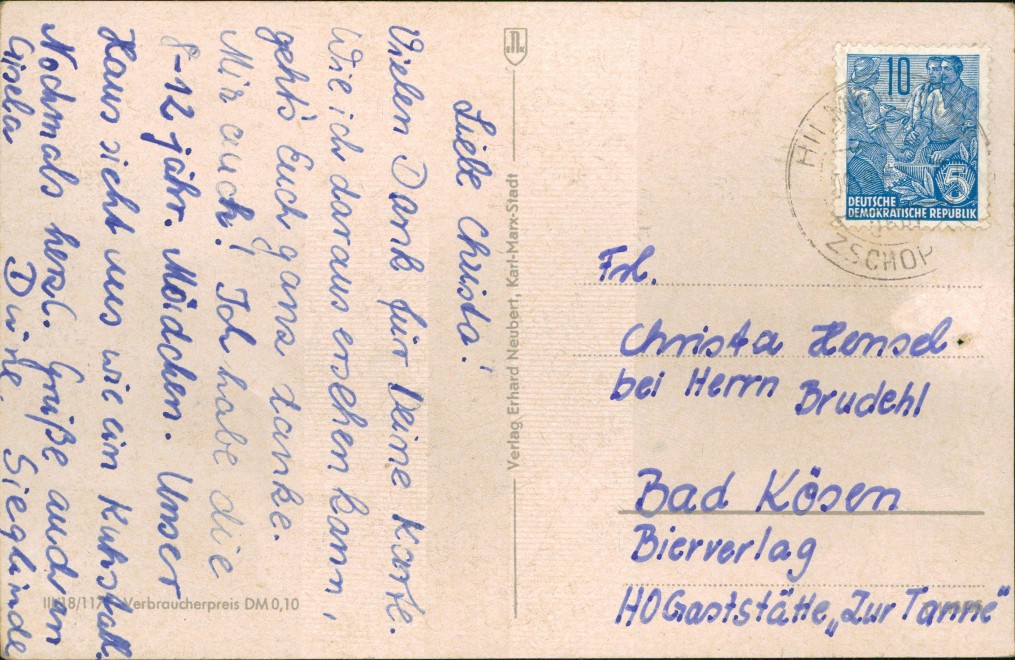 Liebe Christa!
Vielen Dank für Deine Karte.
Wie ich daraus ersehen kann,
geht's Euch ganz danke.
Mir auch! Ich habe die
8-12 jähr. Mädchen. Unser
Haus sieht aus wie ein Kuhstall.
Nochmals herzl. Grüße auch an
Gisela Deine Sieglinde
Verlag Erhard Neubert, Karl-Marx-Stadt
III/18/117 Verbraucherpreis DM 0,10
10
5
DEUTSCHE
DEMOKRATISCHE REPUBLIK
ZSCHOP
Frl.
Christa Hensel
bei Herrn Brudehl
Bad Kösen
Bierverlag
HO Gaststätte „Zur Tanne"